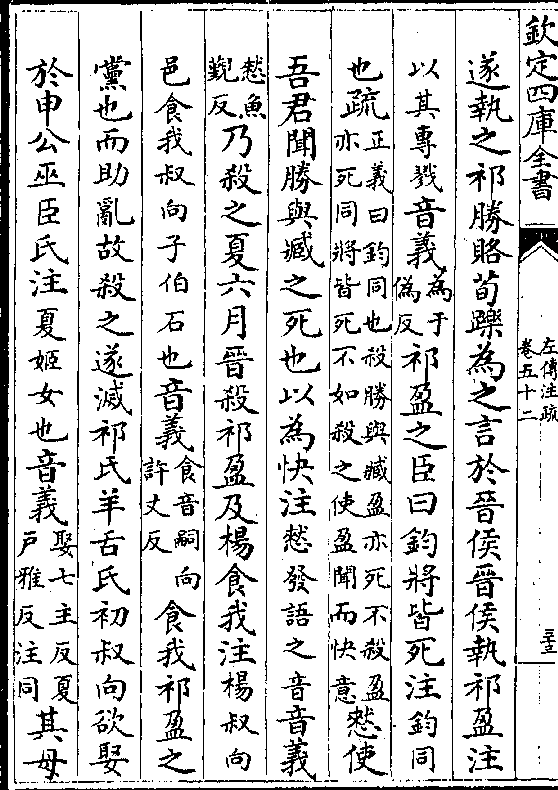 欽定四庫全書
左傳注疏
卷五十二
三十三
遂執之祁勝賂荀躒為之言於晉侯晉侯執祁盈注
以其專戮音義為于偽反祁盈之臣曰鈞將皆死注鈞同
也疏正義曰鈞同也殺勝與臧盈亦死不殺盈亦死同將皆死不如殺之使盈聞而快意憖使
吾君聞勝與臧之死也以為快注憖發語之音音義
憖魚覲反乃殺之夏六月晉殺祁盈及楊食我注楊叔向
邑食我叔向子伯石也音義食音嗣向許丈反食我祁盈之
黨也而助亂故殺之遂滅祁氏羊舌氏初叔向欲娶
於申公巫臣氏注夏姬女也音義娶七主反夏戶雅反注同其母